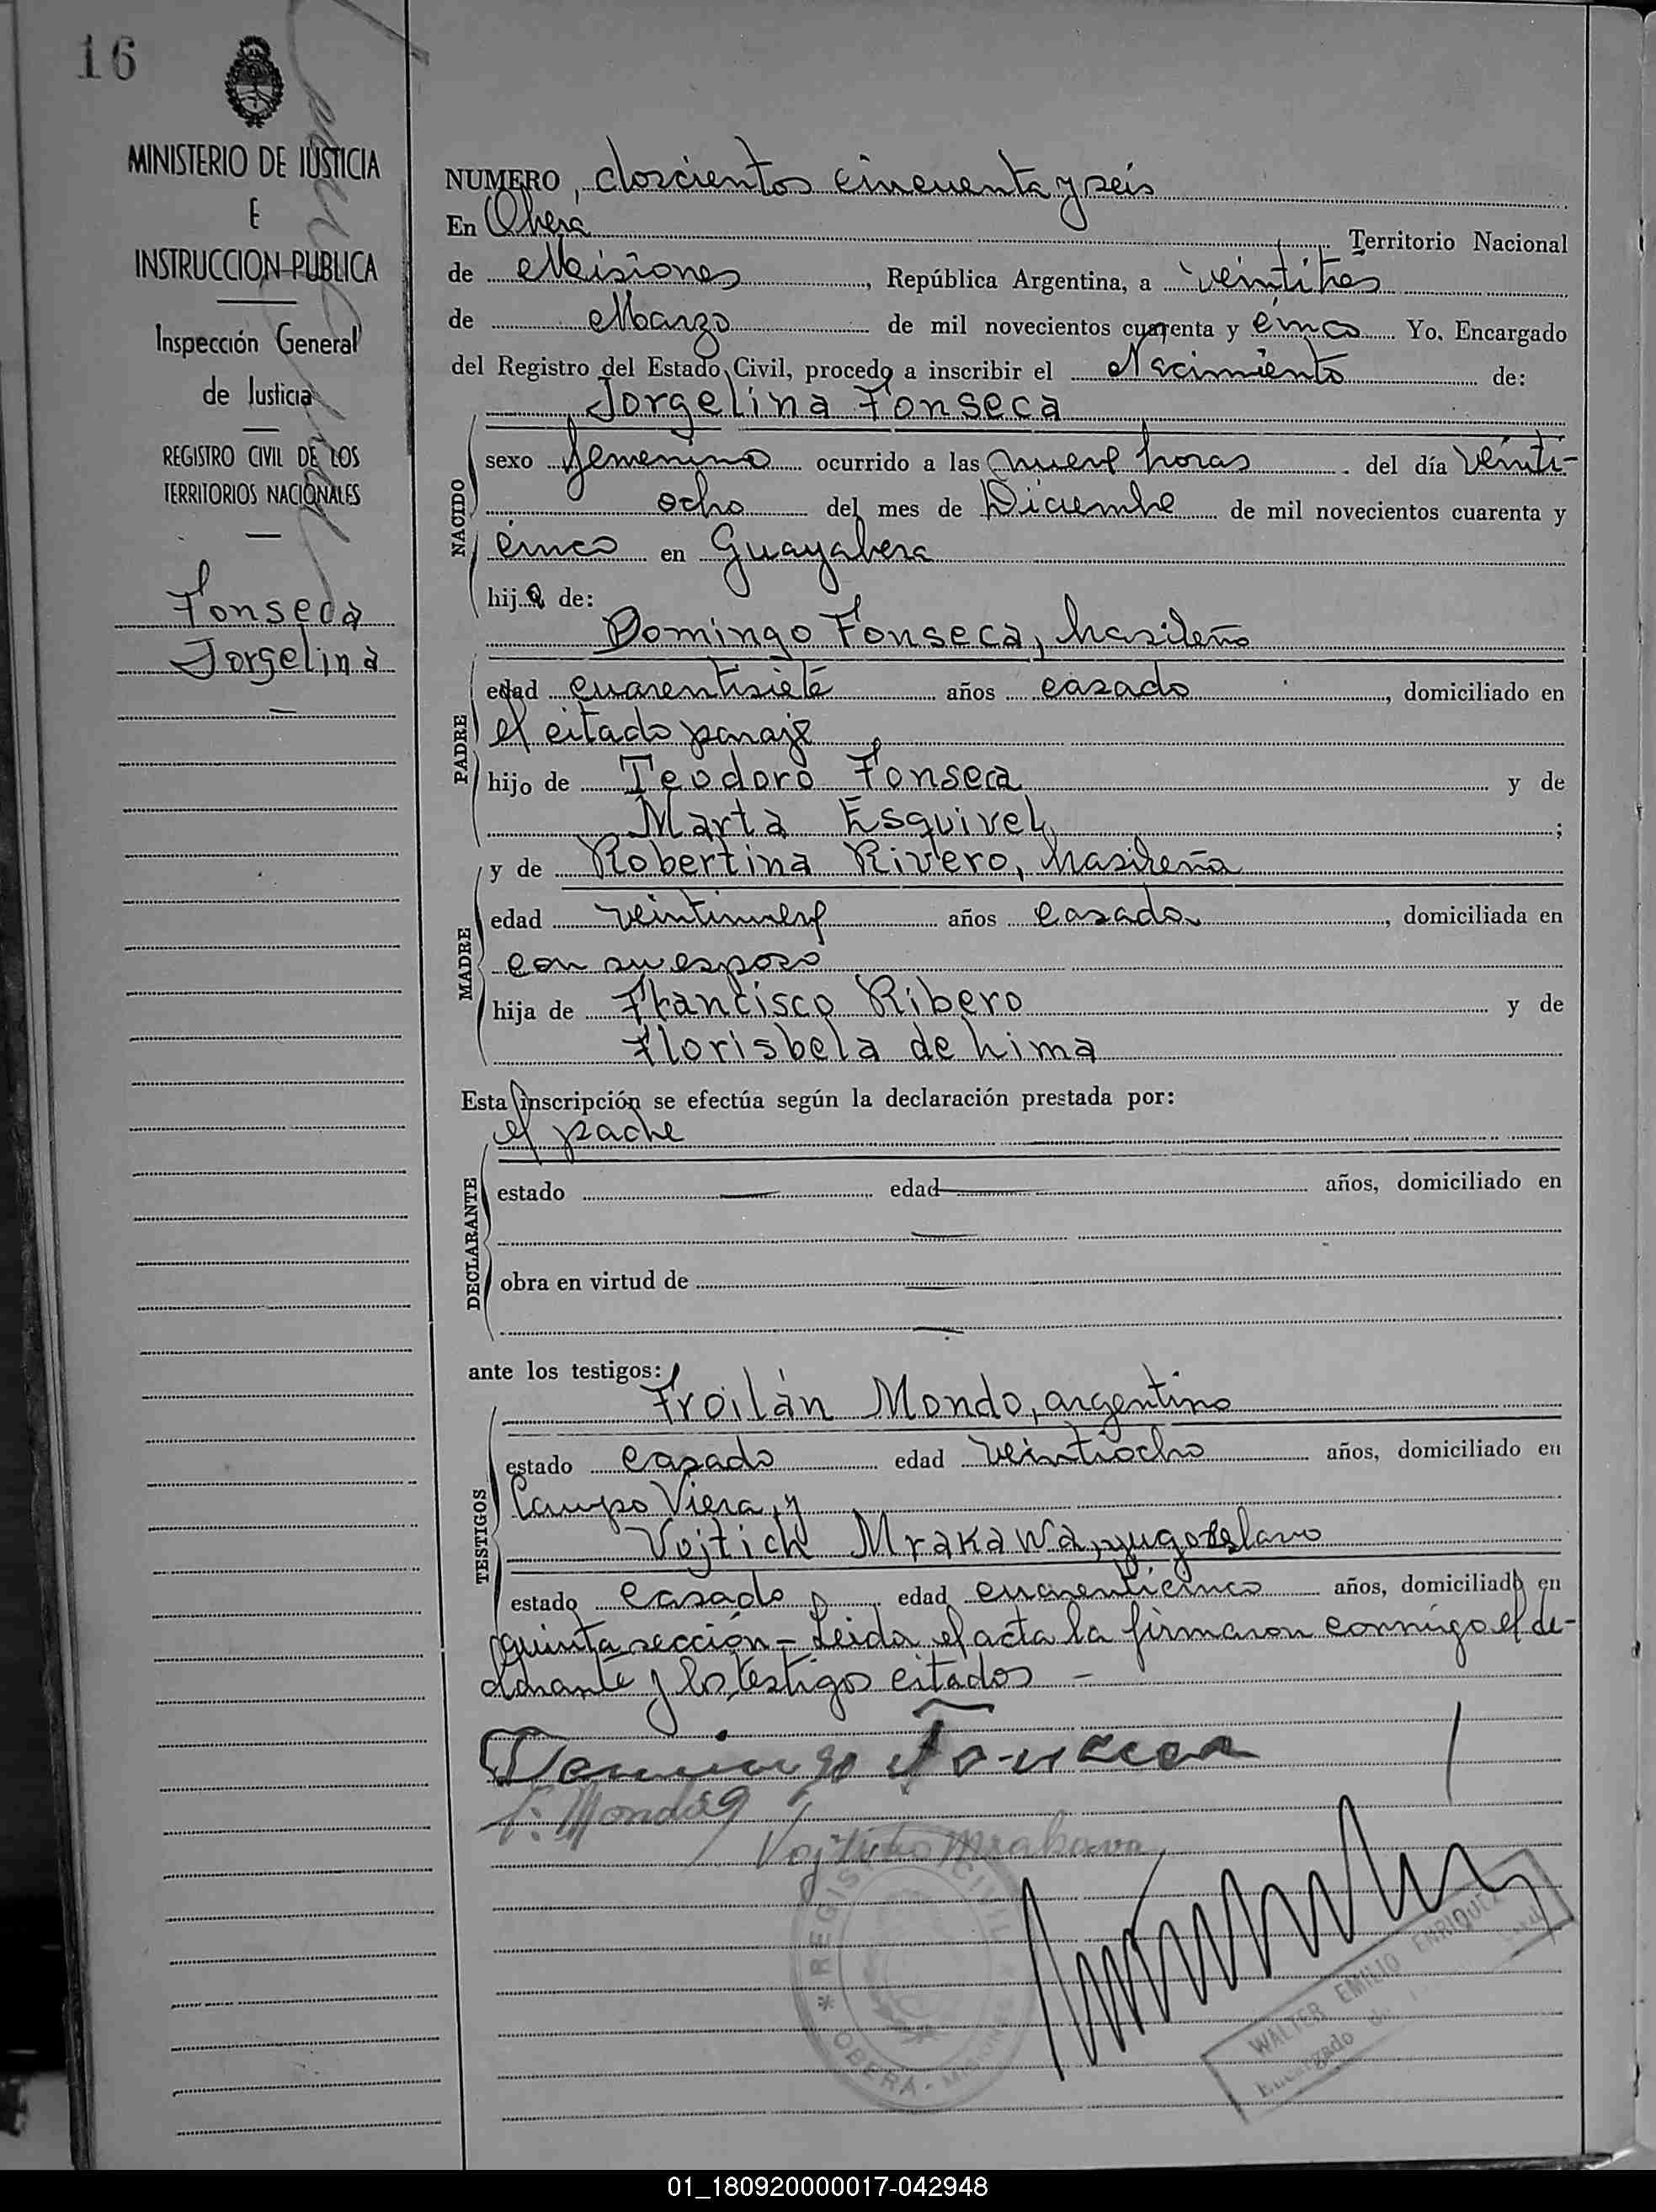 16
MINISTERIO DE JUSTICIA
E
INSTRUCCION PUBLICA
Inspección General
de Justicia
REGISTRO CIVIL DE LOS
TERRITORIOS NACIONALES
Fonseca
Jorgelina
NUMERO, doscientos cincuenta y seis
En Oberá Territorio Nacional
de Misiones, República Argentina, a veintitres
de Marzo de mil novecientos cuarenta y cinco Yo, Encargado
del Registro del Estado Civil, procedo a inscribir el Nacimiento de:
Jorgelina Fonseca
NACIDO
sexo femenino ocurrido a las nueve horas del día veinti-
ocho del mes de Diciembre de mil novecientos cuarenta y
cinco en Guayabera
hija de:
Domingo Fonseca, brasileño
PADRE
edad cuarentisiete años casado, domiciliado en
el citado paraje
hijo de Teodoro Fonseca y de
Marta Esquivel;
MADRE
y de Robertina Rivero, brasileña
edad veintinueve años casada, domiciliada en
con su esposo
hija de Francisco Ribero y de
Florisbela de Lima
Esta inscripción se efectúa según la declaración prestada por:
el padre
DECLARANTE
estado edad años, domiciliado en
obra en virtud de
ante los testigos:
Froilán Mondo, argentino
TESTIGOS
estado casado edad veintiocho años, domiciliado en
Campo Viera, y
Vojtich Mrakawa, yugoeslavo
estado casado edad cuarenticinco años, domiciliado en
quinta sección - Leida el acta la firmaron conmigo el de-
clarante y los testigos citados -
Domingo Fonseca
F. Mondo
Mrakava
REGISTRO CIVIL
OBERA - MISIONES
WALTER EMILIO ENRIQUE
Encargado de
01_180920000017-042948